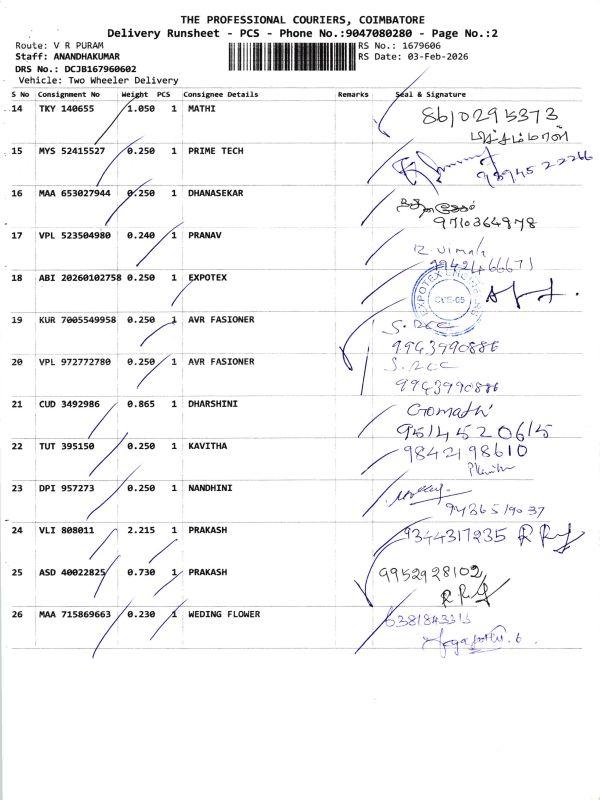 THE PROFESSIONAL COURIERS, COIMBATORE
Delivery Runsheet - PCS - Phone No.:9047080280 - Page No.:2
Route: V R PURAM
RS No.: 1679606
Staff: ANANDHAKUMAR
RS Date: 03-Feb-2026
DRS No.: DCJB167960602
Vehicle: Two Wheeler Delivery
S No Consignment No Weight PCS Consignee Details Remarks Seal & Signature
14 TKY 140655 1.050 1 MATHI 8610295373
15 MYS 52415527 0.250 1 PRIME TECH
16 MAA 653027944 0.250 1 DHANASEKAR
9710364978
17 VPL 523504980 0.240 1 PRANAV
18 ABI 20260102758 0.250 1 EXPOTEX
19 KUR 7005549958 0.250 1 AVR FASIONER
9943990886
20 VPL 972772780 0.250 1 AVR FASIONER
9943990886
21 CUD 3492986 0.865 1 DHARSHINI Gomathi
9514520615
22 TUT 395150 0.250 1 KAVITHA 9842198610
23 DPI 957273 0.250 1 NANDHINI
24 VLI 808011 2.215 1 PRAKASH 9344317235
25 ASD 40022825 0.730 1 PRAKASH 9952928102
26 MAA 715869663 0.230 1 WEDING FLOWER